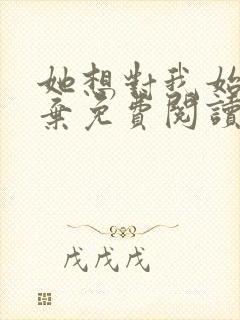 她想對我始
棄免費閱讀
戊戊戊